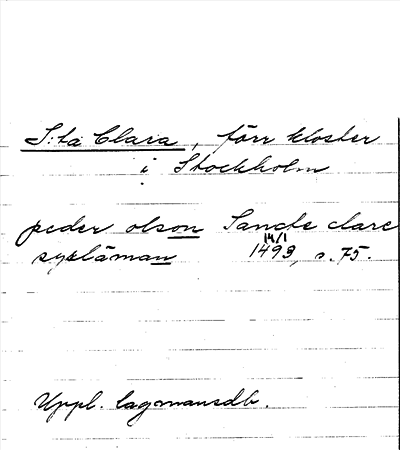 S:ta Clara, förr kloster
i Stockholm
peder olson Sancte clare
sysläman 14/1 1493, s. 75.
Uppl. lagmansdb.